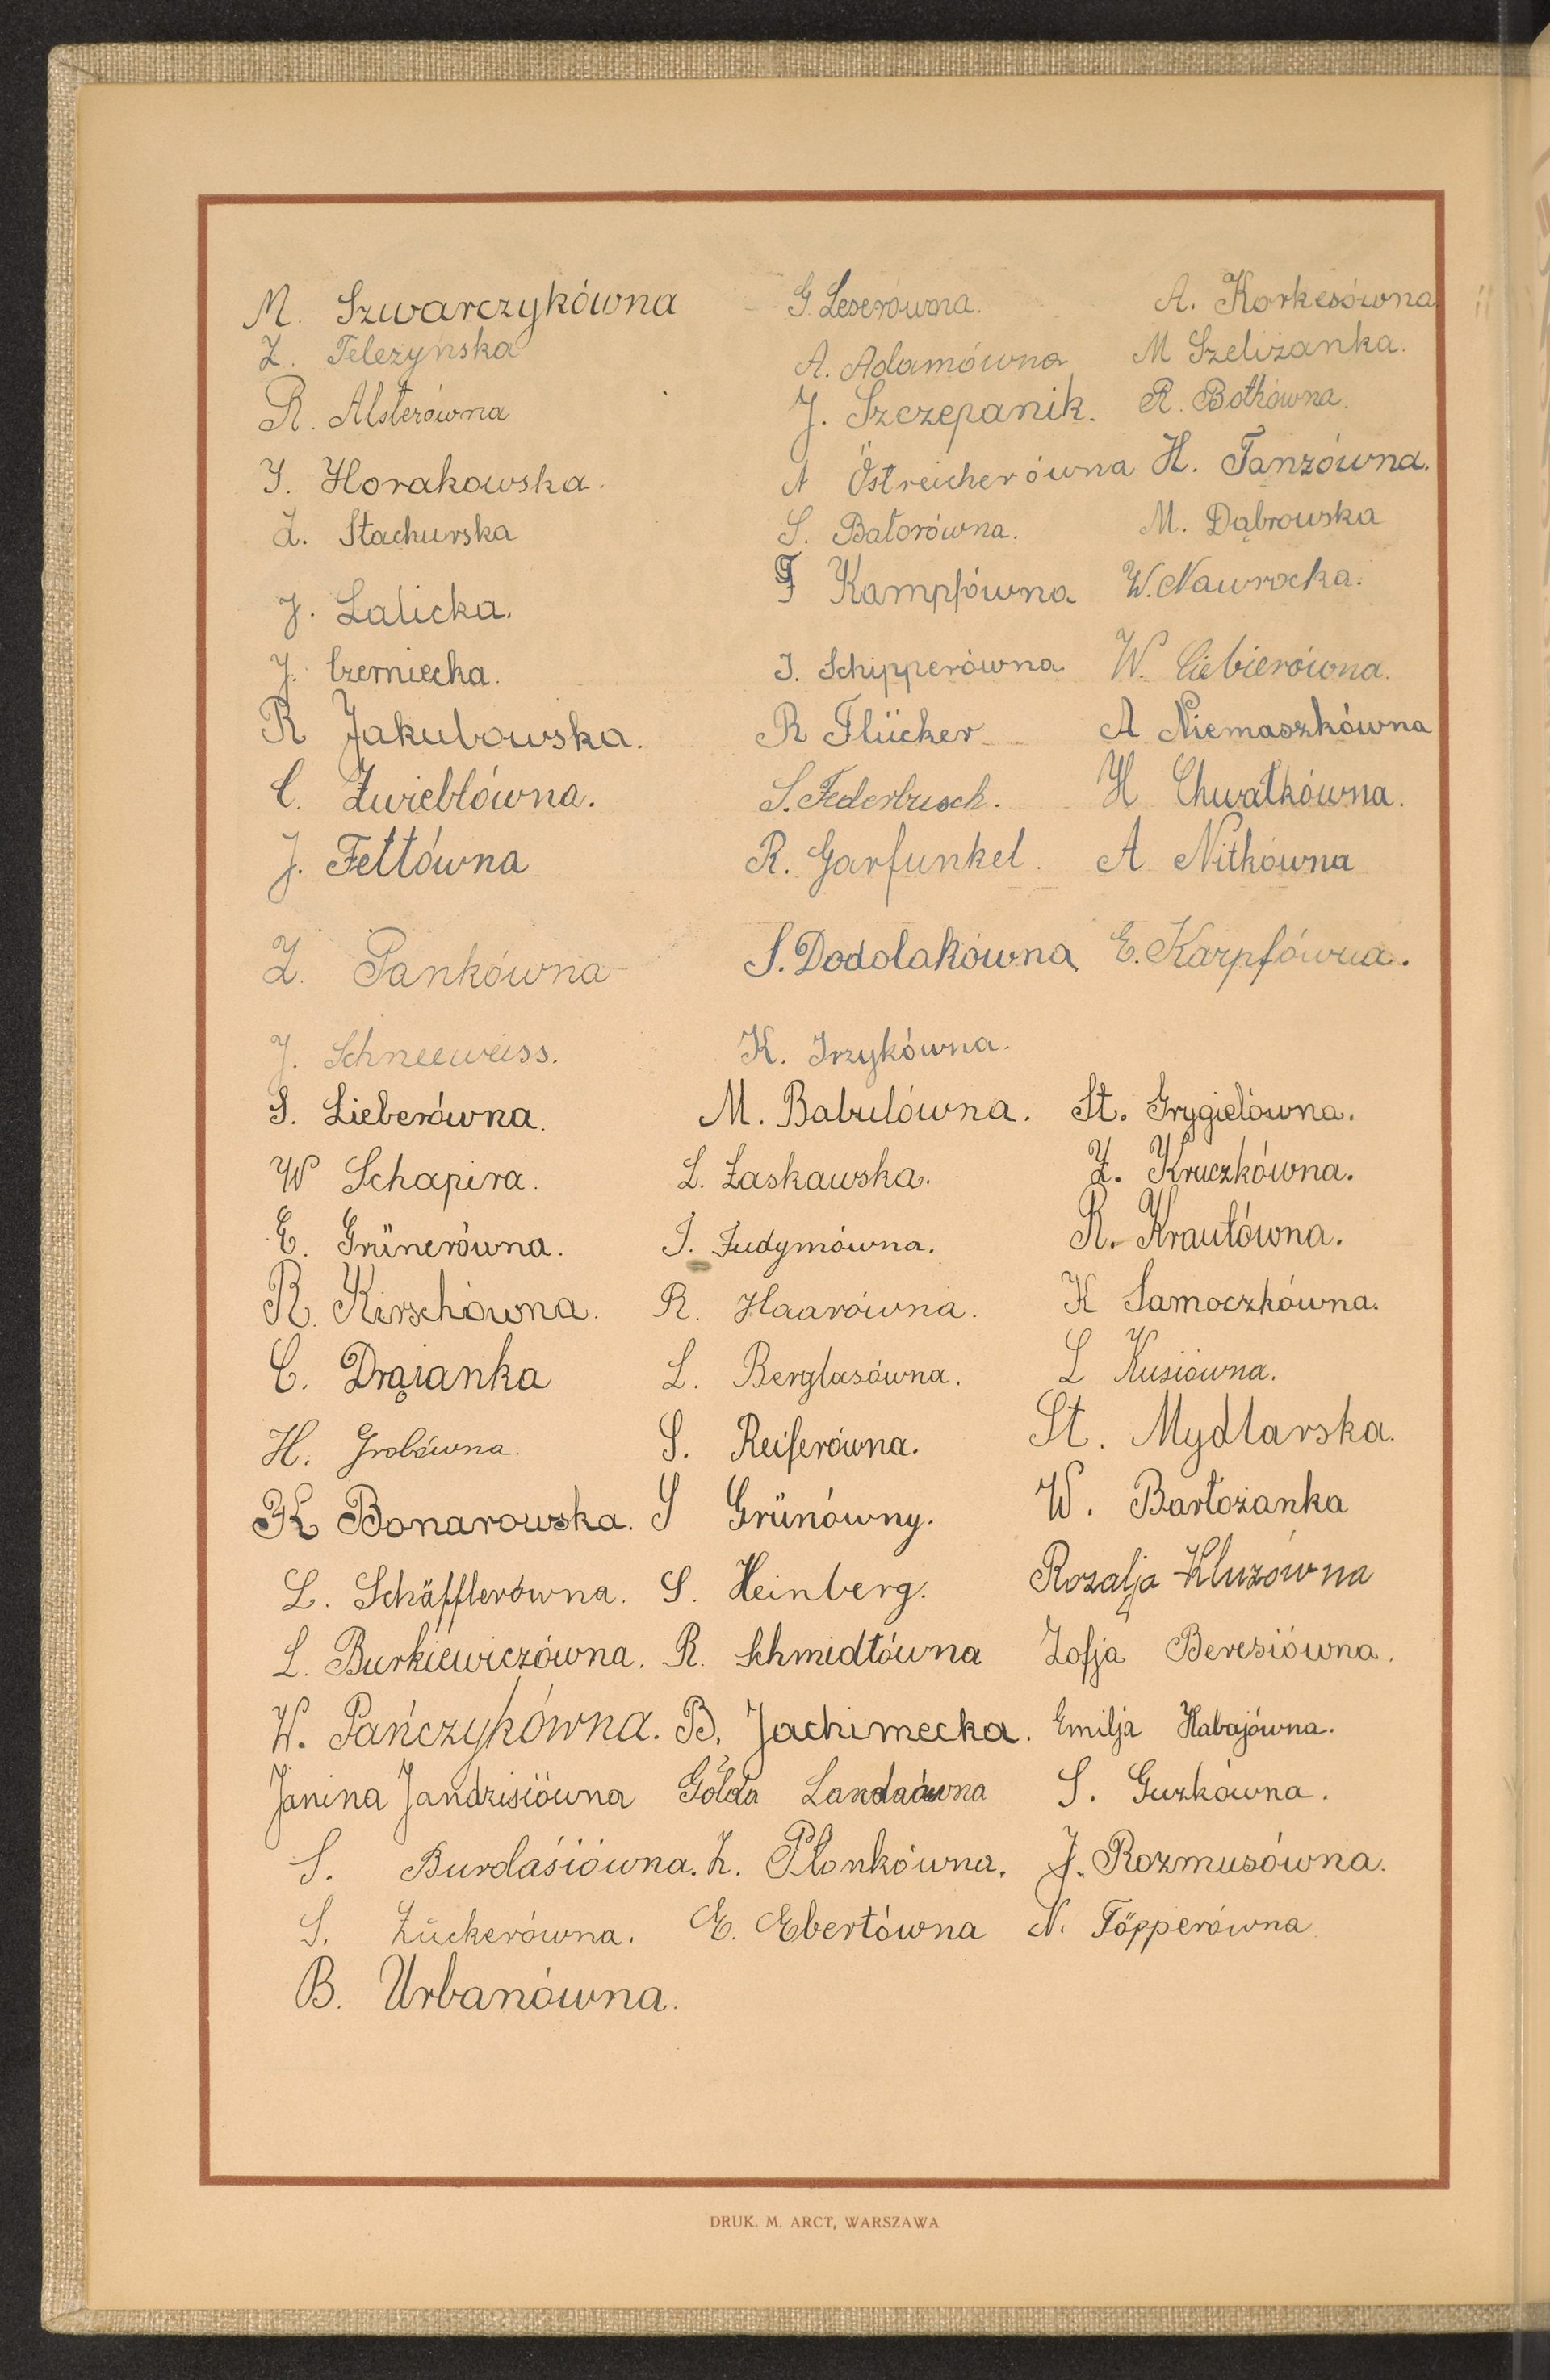 M. Szwarczykówna G. Leserówna. A. Korkesówna
Z. Telezyńska A. Adamówna M Szeliżanka.
R. Alsterówna J. Szczepanik. R. Bothówna.
I. Horakowska. A Östreicherówna H. Tanzówna.
Z. Stachurska S. Batorówna. M. Dąbrowska
J. Lalicka. F Kampfówna W. Nawrocka.
J. Czerniecka. I. Schipperówna W. Ciebierówna.
R Jakubowska. R Flücker A Niemaszkówna
C. Zwieblówna. S. Federbusch. H Chwałkówna.
J. Fettówna R. Garfunkel. A Nitkówna
Z. Pankówna S. Dodolakówna E. Karpfówna.
J. Schneeweiss. K. Irzykówna.
S. Lieberówna. M. Babulówna. St. Grygielówna.
W Schapira. L. Łaskawska. Z. Kruczkówna.
E. Grünerówna. I. Judymówna. R. Krautówna.
R. Kirschówna. R. Haarówna. K Samoczkówna.
C. Drążanka L. Berglasówna. L Kusiówna.
H. Grobówna. S. Reiferówna. St. Mydlarska.
K Bonarowska. S Grünówny. W. Bartożanka
L. Schäfflerówna. S. Heinberg. Rozalja Kluzówna
L. Burkiewiczówna. R. Schmidtówna Zofja Beresiówna.
W. Pańczykówna. B. Jachimecka. Emilja Habajówna.
Janina Jandzisiówna Golda Landauówna S. Guzkówna.
S. Burdasiówna. Z. Płonkówna. J. Rozmusówna.
S. Zuckerówna. E. Ebertówna N. Töpperówna
B. Urbanówna.
DRUK. M. ARCT, WARSZAWA